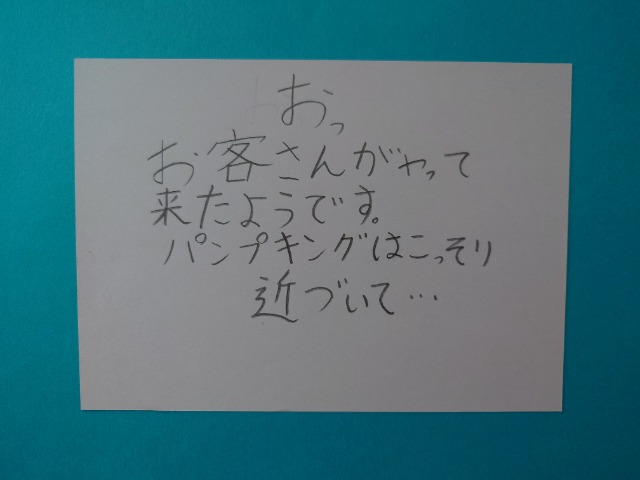 おっ
お客さんがやって
来たようです。
パンプキングはこっそり
近づいて…